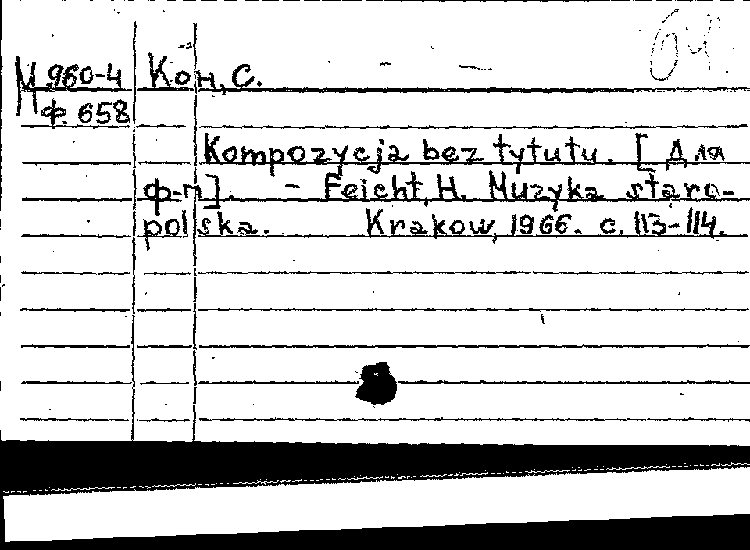 64.
М 960-4 Кон, С.
ф. 658
Kompozycja bez tytutu. [Для
ф-п]. – Feicht, H. Muzyka staro-
polska. Krakow, 1966. с. 113-114.